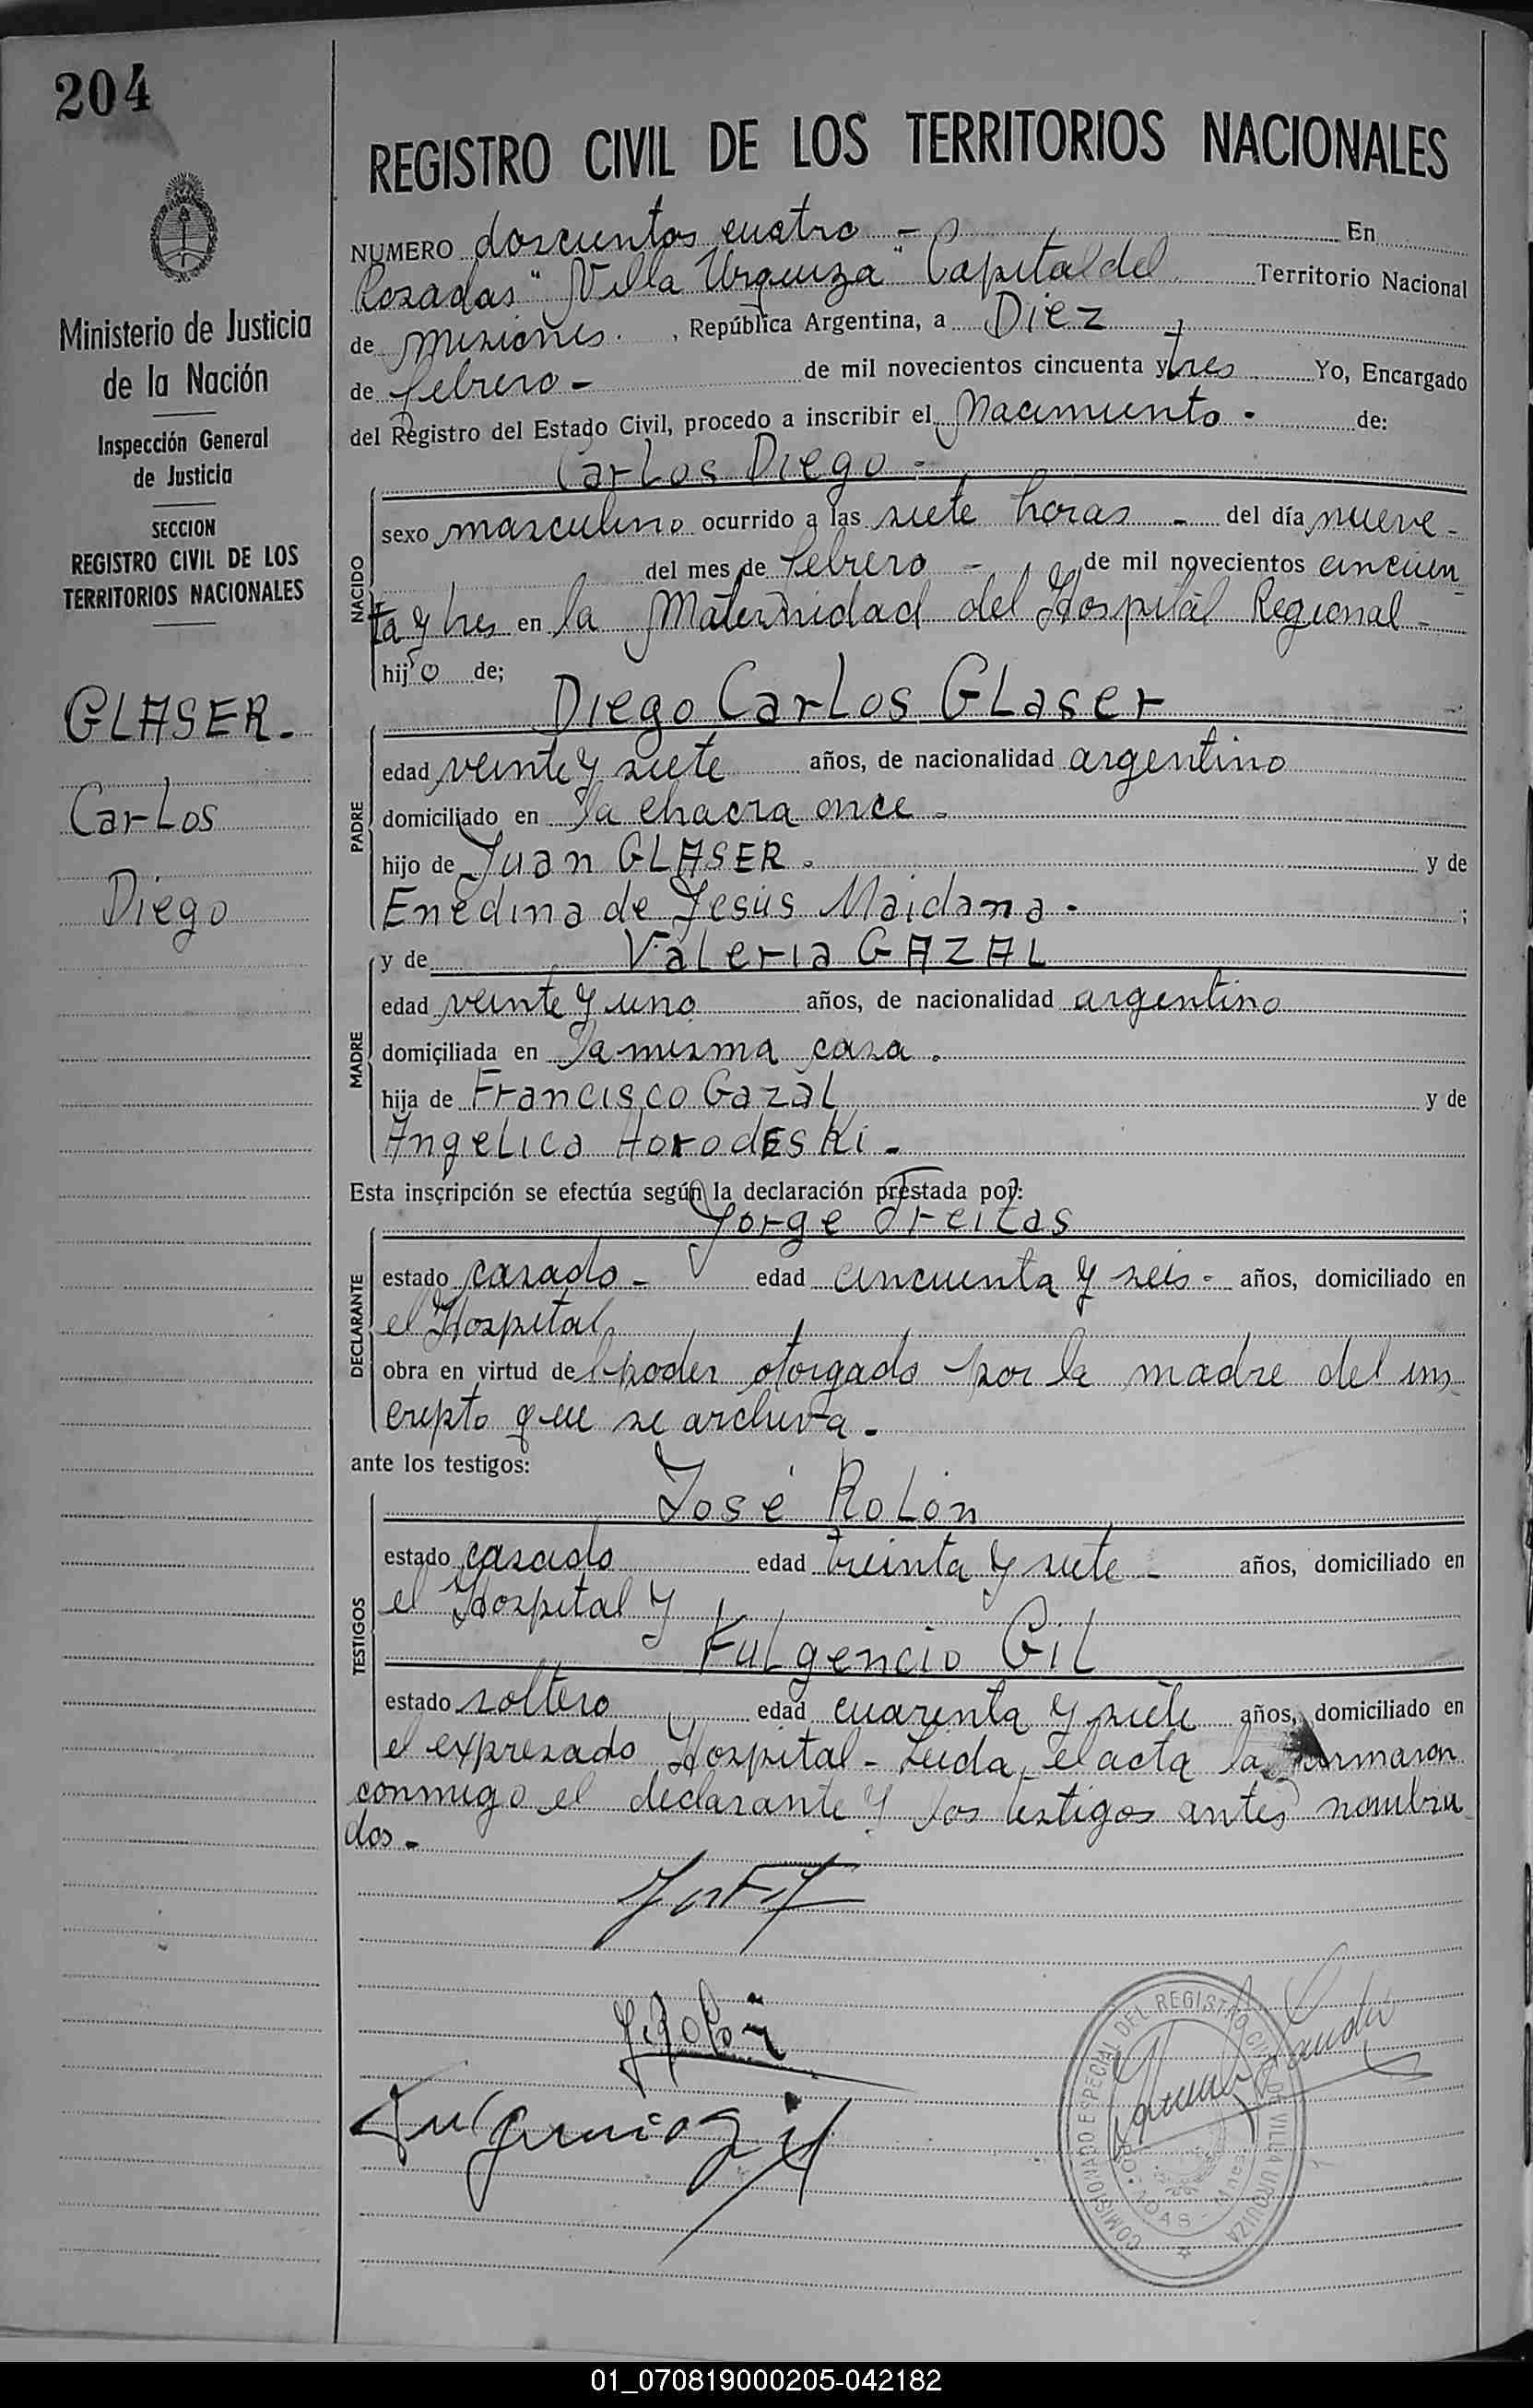 204
Ministerio de Justicia
de la Nación
Inspección General
de Justicia
SECCION
REGISTRO CIVIL DE LOS
TERRITORIOS NACIONALES
GLASER.
Carlos
Diego
REGISTRO CIVIL DE LOS TERRITORIOS NACIONALES
NUMERO doscientos cuatro - En
Posadas "Villa Urquiza" Capital del Territorio Nacional
de Misiones. , República Argentina, a Diez
de febrero - de mil novecientos cincuenta y tres Yo, Encargado
del Registro del Estado Civil, procedo a inscribir el Nacimiento - de:
Carlos Diego -
NACIDO
sexo masculino ocurrido a las siete horas - del día nueve -
del mes de febrero - de mil novecientos cincuen
ta y tres en la Maternidad del Hospital Regional -
hijo de;
Diego Carlos Glaser
PADRE
edad veinte y siete años, de nacionalidad argentino
domiciliado en la chacra once -
hijo de Juan GLASER. y de
Enedina de Jesús Maidana - ;
MADRE
y de Valeria GAZAL
edad veinte y uno años, de nacionalidad argentino
domiciliada en la misma casa.
hija de Francisco Gazal y de
Angelica Horodeski -
Esta inscripción se efectúa según la declaración prestada por:
Jorge Freitas
DECLARANTE
estado casado - edad cincuenta y seis - años, domiciliado en
el Hospital
obra en virtud del poder otorgado por la madre del ins
cripto que se archiva -
ante los testigos:
José Rolón
TESTIGOS
estado casado edad treinta y siete - años, domiciliado en
el Hospital y
Fulgencio Gil
estado soltero edad cuarenta y siete años, domiciliado en
el expresado Hospital - Leida el acta la firmaron
conmigo el declarante y los testigos antes nombra
dos -
Fulgencio Gil
COMISIONADO ESPECIAL DEL REGISTRO CIVIL DE VILLA URQUIZA
POSADAS - Mnes
01_070819000205-042182